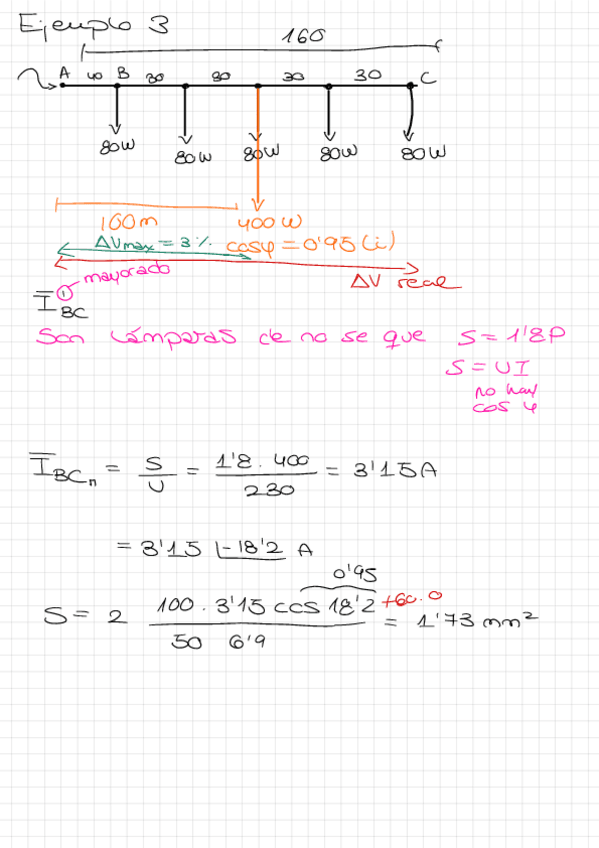 Ejemplo 3
160
A 40 B 30 30 30 30 C
80W 80W 80W 80W 80W
100m 400W
ΔVmax = 3% cosφ = 0'95 (i)
① mayorado ΔV real
I BC
Son lámparas de no se que S = 1'8P
S = UI
no hay
cos φ
I BCn = S/U = 1'8 . 400 / 230 = 3'15A
= 3'15 |-18'2 A
0'95
S = 2 100 . 3'15 cos 18'2 +60.0 / 50 6'9 = 1'73 mm²